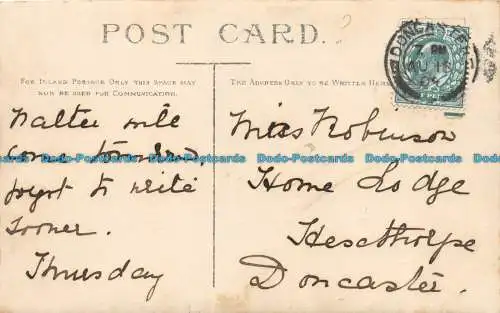 POST CARD.
FOR INLAND POSTAGE ONLY THIS SPACE MAY
NOW BE USED FOR COMMUNICATION.
THE ADDRESS ONLY TO BE WRITTEN HERE
DONCASTER
PM
AU 18
Walter will
come tomorrow,
forgot to write
sooner.
Thursday
Miss Robinson
Home Lodge
Hescthorpe
Doncaster.
Dodo-Postcards Dodo-Postcards Dodo-Postcards Dodo-Postcards